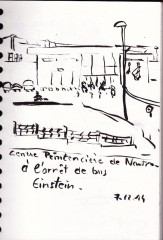 Centre Pénitencière de Nantes
à l'arrêt de bus
Einstein.
7.12.14